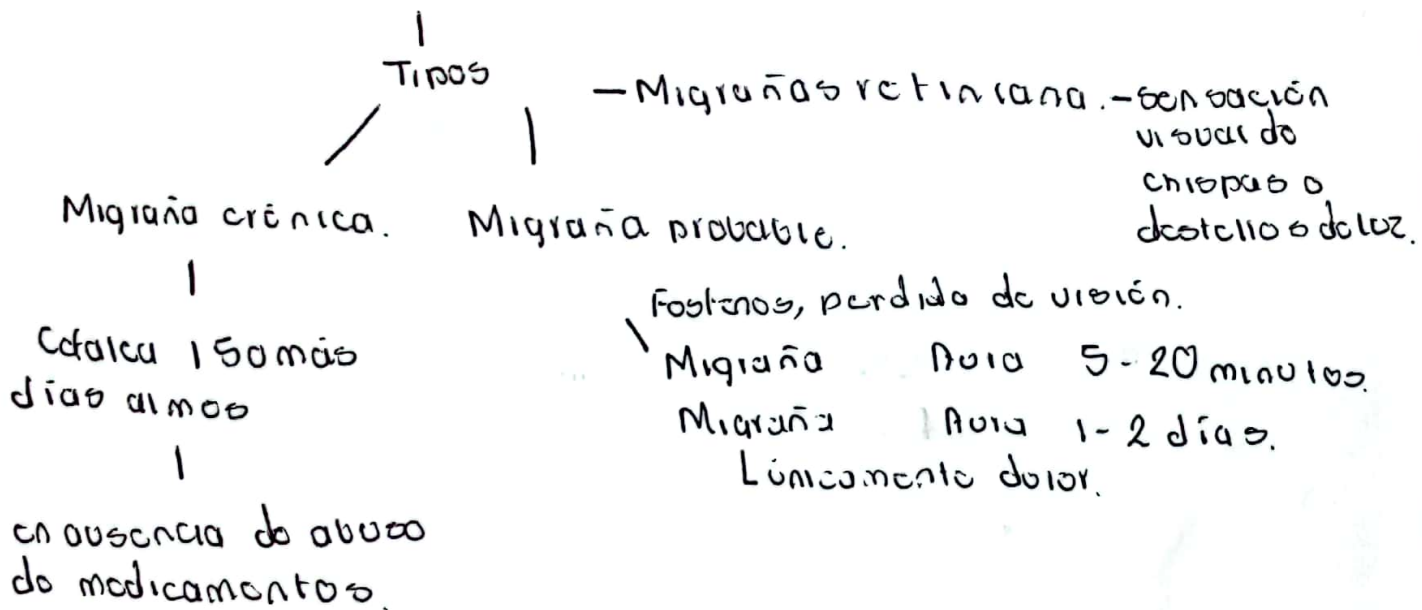 Tipos
- Migrañas retiniana. - sensación
visual de
chispas o
destellos de luz.
Migraña crónica.
Migraña probable.
Cefalea 15 o más
días al mes
en ausencia de abuso
de medicamentos.
Fosfenos, perdida de visión.
Migraña Aura 5-20 minutos.
Migraña Aura 1-2 días.
únicamente dolor.